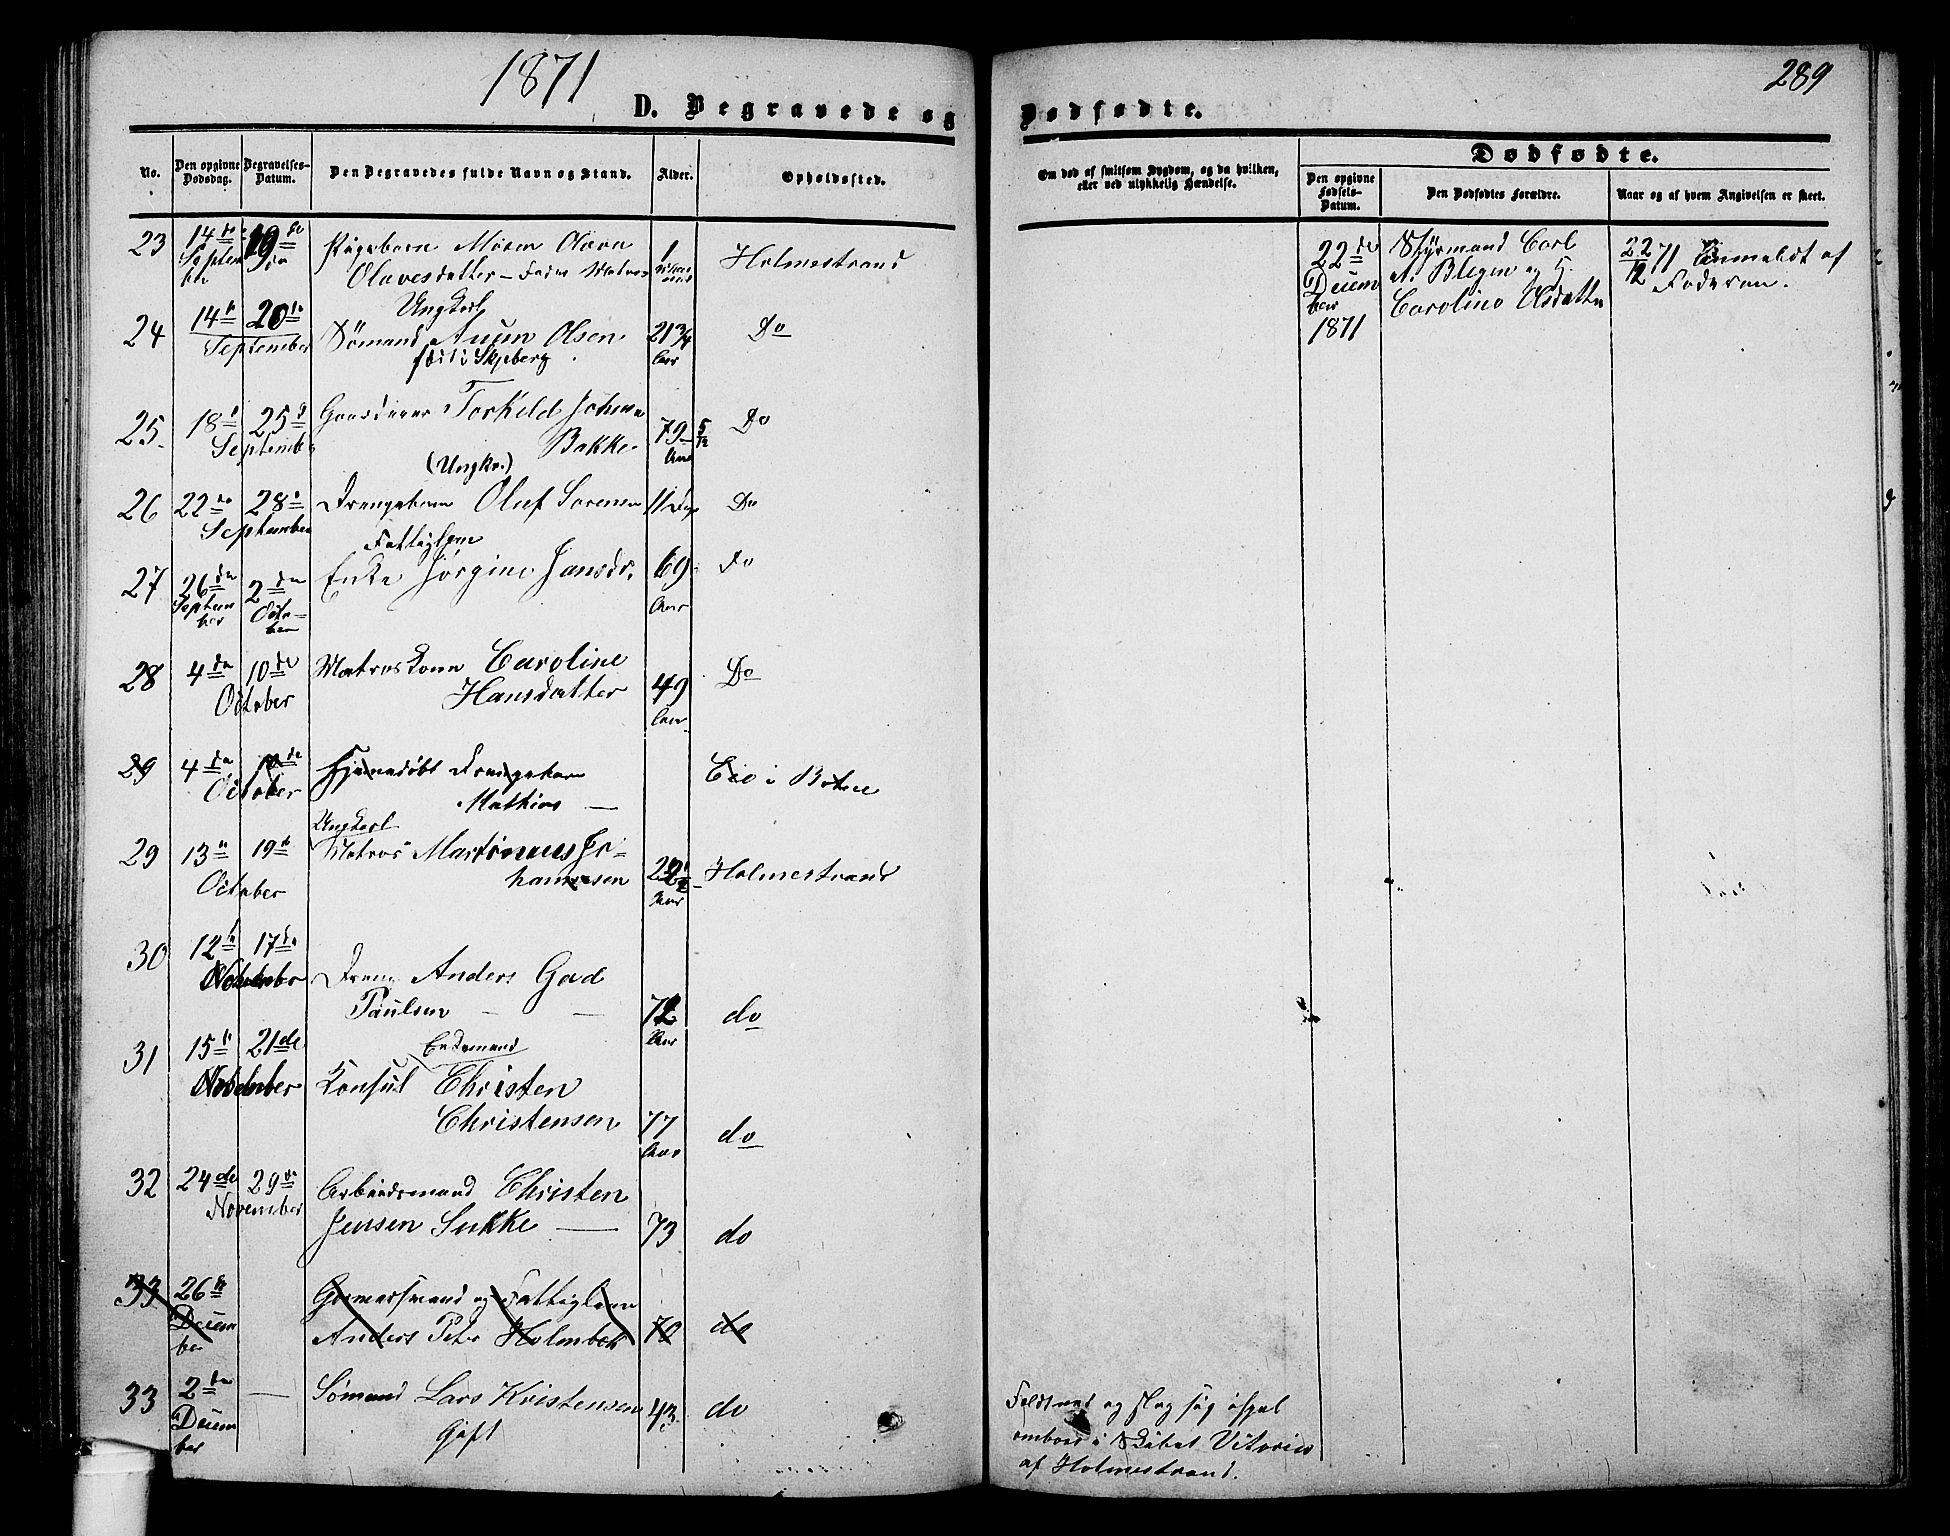 1871
289
D. Begravede og Dødfødte.
No.
Den opgivne Dødsdag.
Begravelses-Datum.
Den Begravedes fulde Navn og Stand.
Alder.
Opholdssted.
Om død af smitsom Sygdom, og da hvilken,
eller ved ulykkelig Hændelse.
Dødfødte.
Den opgivne Fødsels-Datum.
Den Dødfødtes Forældre.
Naar og af hvem Angivelsen er skeet.
23 14de 19de Pigebarn Maren
September Olavesdatter - Fader Matros 1 Holmestrand
Ungkarl
24 14de 20de Sømand Olsen 21 3/4 Do
September Aar
25. 18de 25de Torkild Johnsen
September Bakke 79 5/12 Do
(Ungkr.) Aar
26 22de 28de Drengebarn Oluf Sorensen 11 Dage Do
September
Fattiglem
27 26de 2de Enke Jørgine Jansdr. 69 Do
September October Aar
28 4de 10de Matroskone Caroline
October Hansdatter 49 Do
Aar
29 4de 10de Hjemmedøbt Drengebarn
October Mathias — i Botne
Ungkarl
29 13de 19de Matros Martinius Jo-
October hannesen 22 1/2 Holmestrand
Aar
30 12te 17de Dreng Anders Gad
November Paulsen - - do
Aar
31 15de 21de Enkemand
November Konsul Christen
Christensen 77 do
Aar
32 24de 29de Arbeidsmand Christen
November Jensen Sukke — 73 do
33 26de og Fattiglem
December Anders Peter Holmboe 79 do
33 2den — Sømand Lars Kristensen 43 do
December Gift
22de
December
1871
Styrmand Carl
A. Blegen og H.
Caroline Olsdatter
22/12 71 Anmeldt af
Faderen.
ombord i Skibet Vitoria
af Holmestrand.